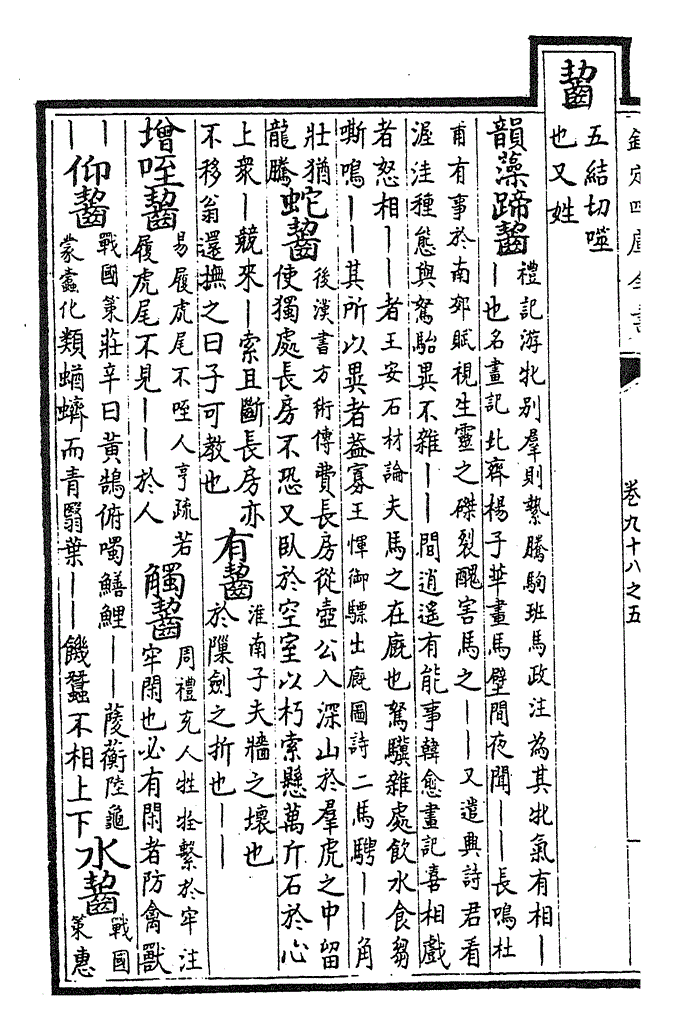 欽定四庫全書
卷九十八之五
齧
五結切噬
也又姓
韻藻蹄齧
禮記游牝别羣則縶騰駒班馬政注為其牝氣有相|
|也名畫記北齊楊子華畫馬壁間夜聞||長鳴杜
甫有事於南郊賦視生靈之磔裂醜害馬之||又遣典詩君看
渥洼種態與駑駘異不雜||間逍遥有能事韓愈畫記喜相戲
者怒相||者王安石材論夫馬之在廐也駑驥雜處飲水食芻
嘶鳴||其所以異者葢寡王惲御驃出廐圖詩二馬騁||角
壯猶
龍騰
蛇齧
後漢書方術傳費長房從壺公入深山於羣虎之中留
使獨處長房不恐又臥於空室以朽索懸萬斤石於心
上衆|競來|索且斷長房亦
不移翁還撫之曰子可教也
有齧
淮南子夫牆之壞也
於隟劍之折也||
增咥齧
易履虎尾不咥人亨疏若
履虎尾不見||於人
觸齧
周禮充人牲牷繫於牢注
牢閑也必有閑者防禽獸
|
|
仰齧
戰國策莊辛曰黄鵠俯噣鱔鯉||蔆蘅陸龜
蒙蠹化類蝤蠐而青翳葉||饑蠶不相上下
水齧
戰國
策惠